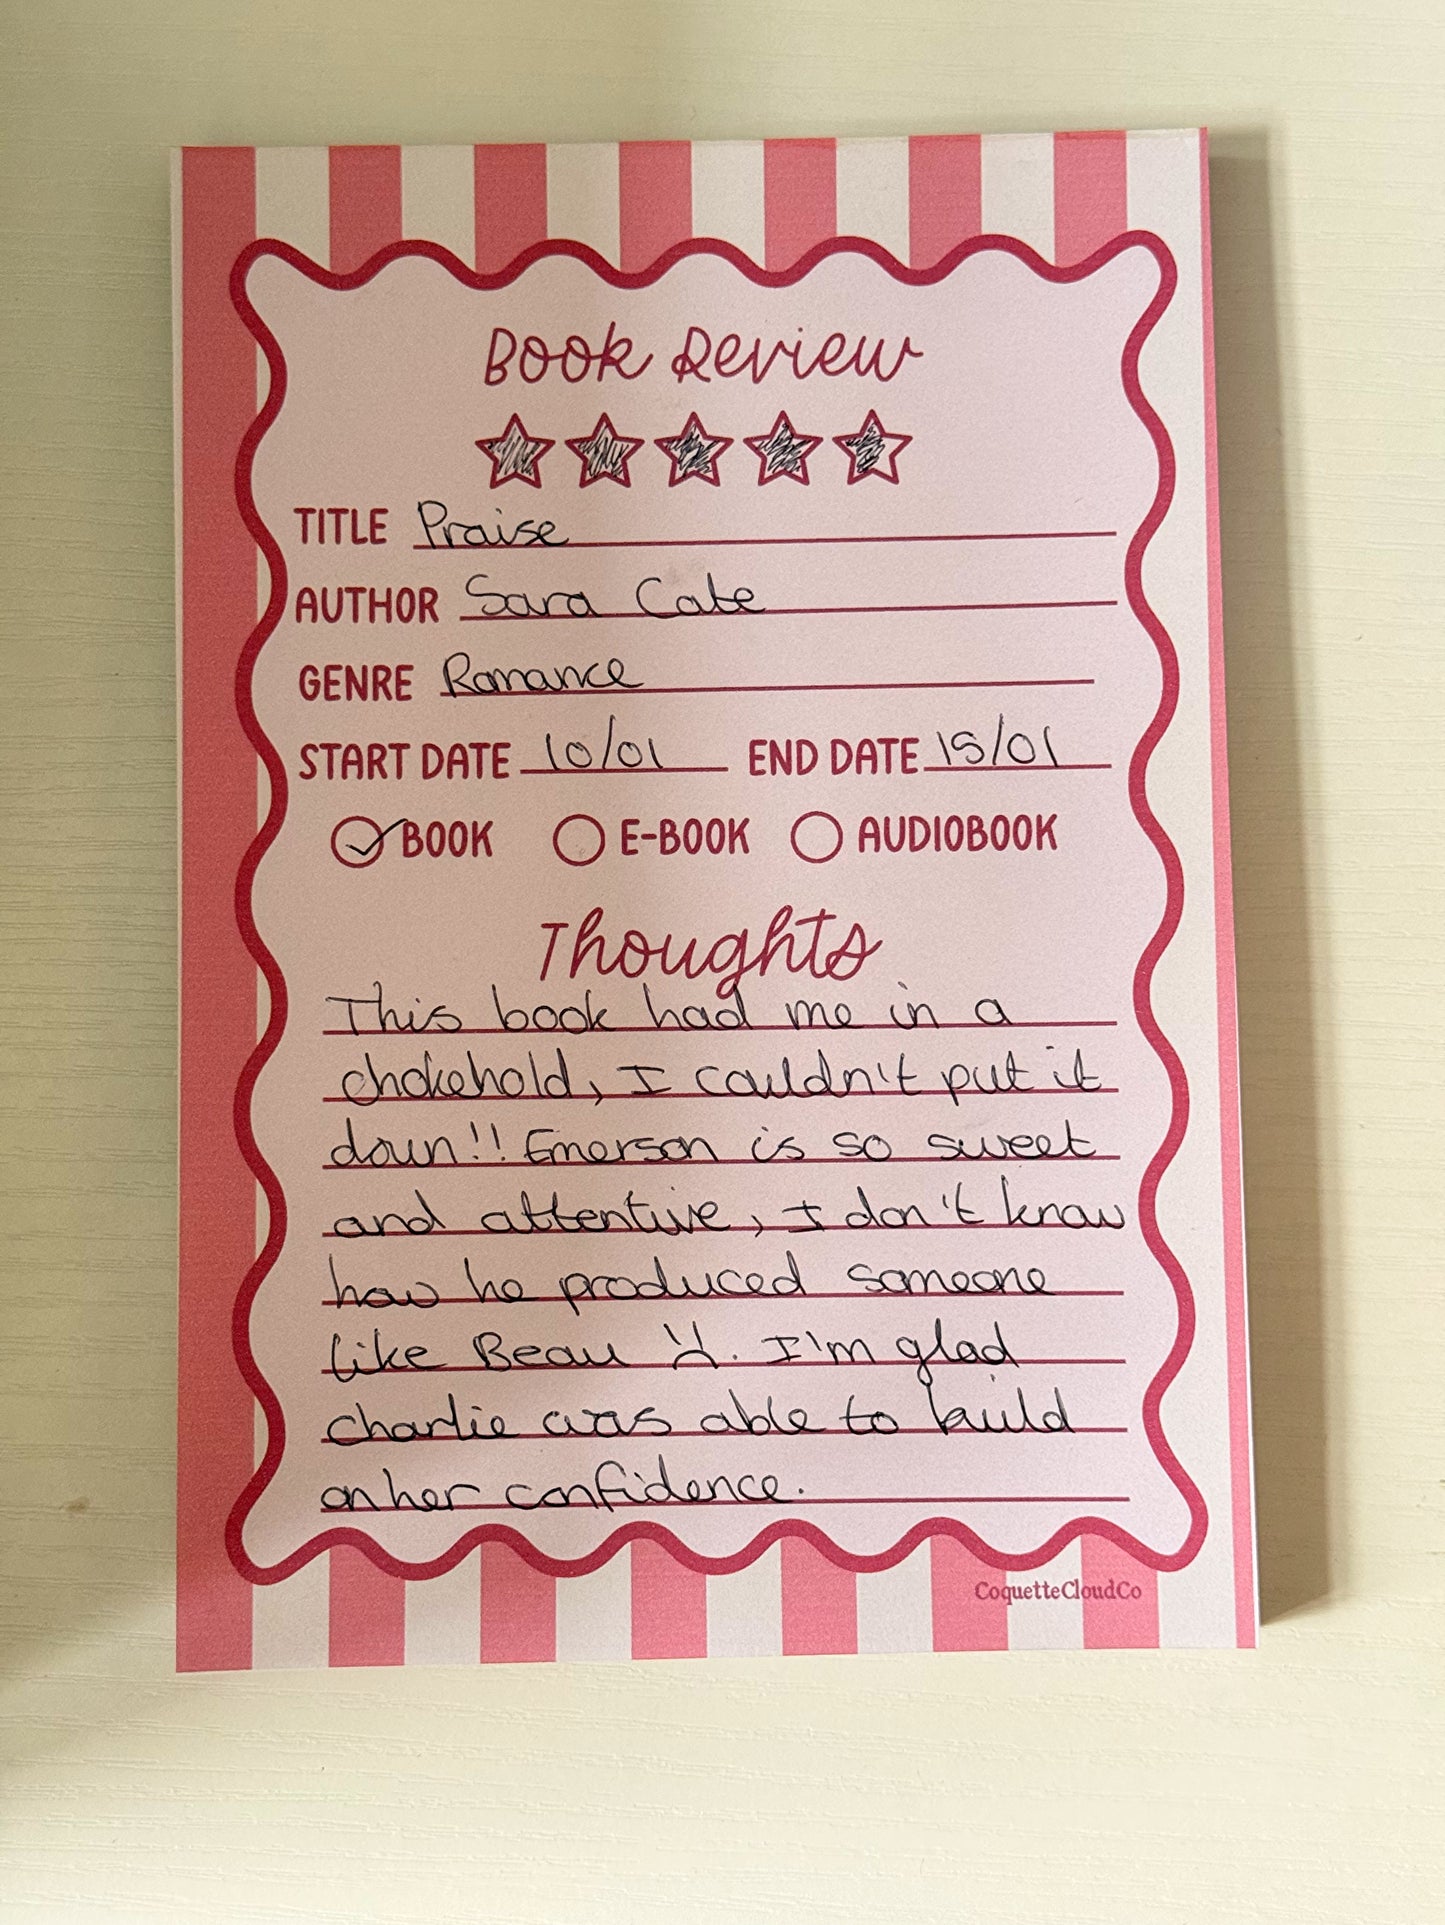 Book Review
TITLE Praise
AUTHOR Sara Cate
GENRE Romance
START DATE 10/01 END DATE 15/01
BOOK E-BOOK AUDIOBOOK
Thoughts
This book had me in a
chokehold, I couldn't put it
down!! Emerson is so sweet
and attentive, I don't know
how he produced someone
like Beau :(. I'm glad
charlie was able to build
on her confidence.
CoquetteCloudCo